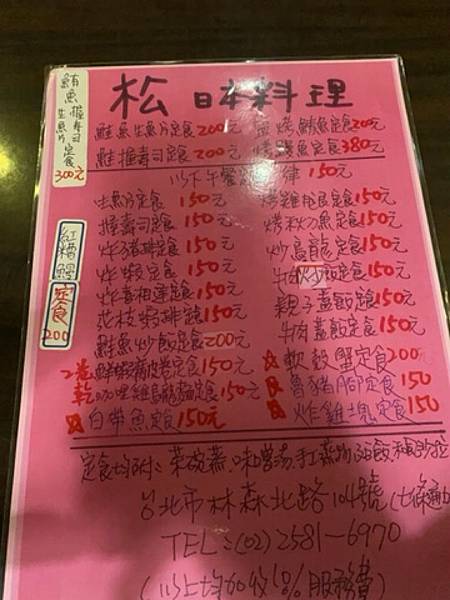 松 日本料理
鮪魚握壽司
生魚片 定食
300元
鮭魚生魚片定食200元
鹽烤鯖魚定食200元
鮭握壽司定食 200元
烤鰻魚定食380元
以下午餐 律 150元
生魚片定食 150元
烤雞腿定食150元
握壽司定食 150元
烤秋刀魚定食150元
炸豬排定食 150元
炒烏龍定食150元
炸蝦定食 150元
牛肉炒飯定食150元
150元
親子蓋飯定食150元
花枝蝦排 150元
牛肉蓋飯定食150元
鮭魚炒飯定食200元
軟殼蟹定食200
咖哩雞烏龍麵定食150元
魯豬腳定食150
白帶魚定食150元
炸雞塊定食150
紅糟鰻
定食
200
定食均附:茶碗蒸.味噌湯.
台北市林森北路104號(七條通
TEL:(02)2581-6970
(以上均加收10%服務費)